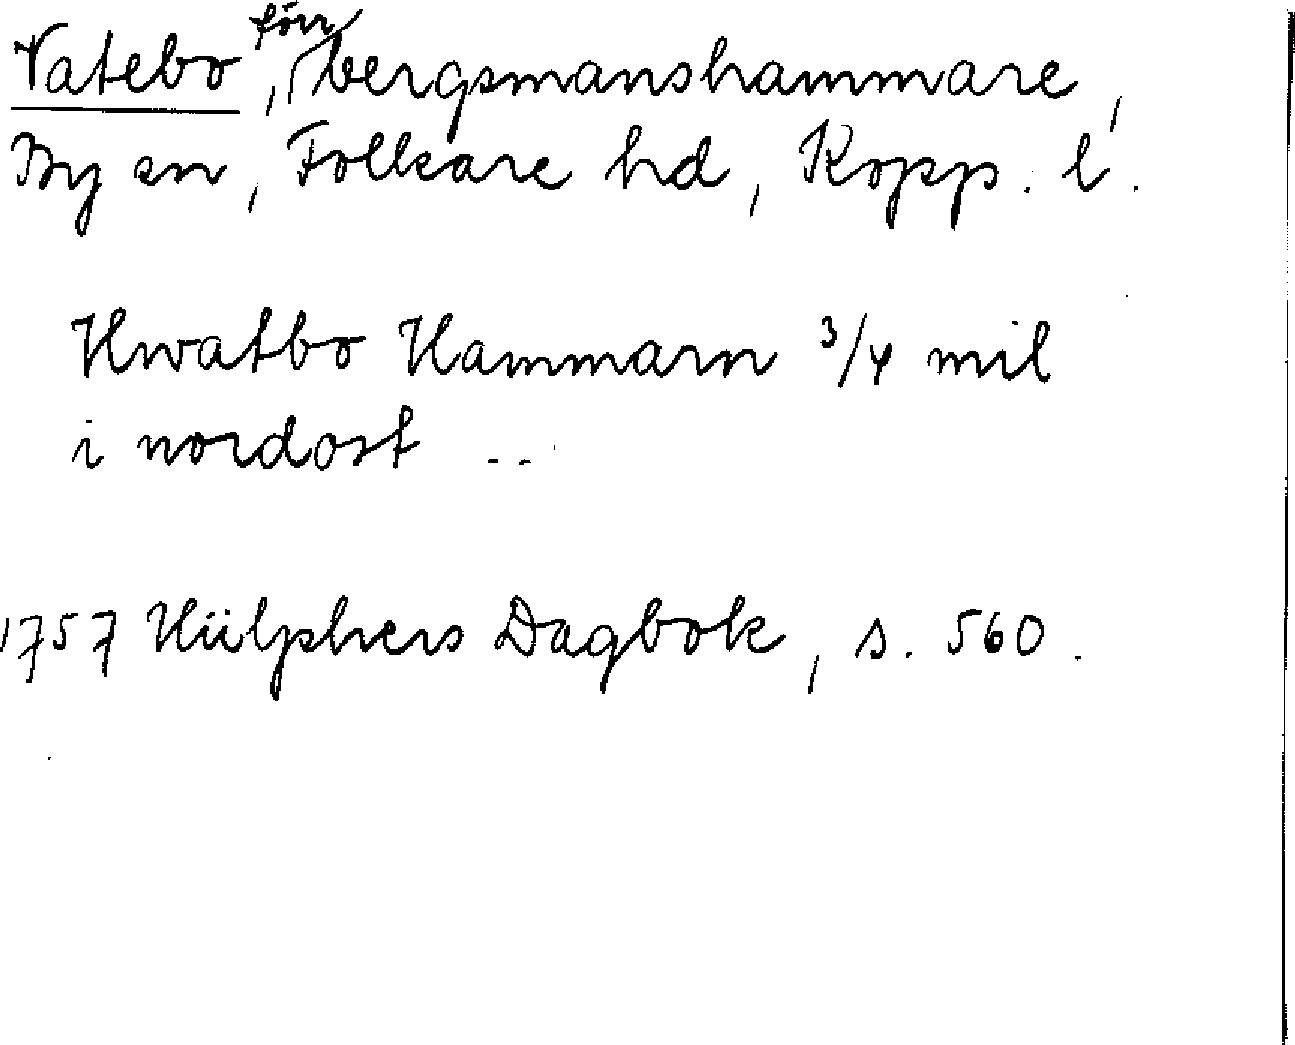 Vatebo, förr bergsmanshammare,
By sn, Folkare hd, Kopp. l.
Hwatbo Hammarn 3/4 mil
i nordost ...
1757 Hülphers Dagbok, s. 560.